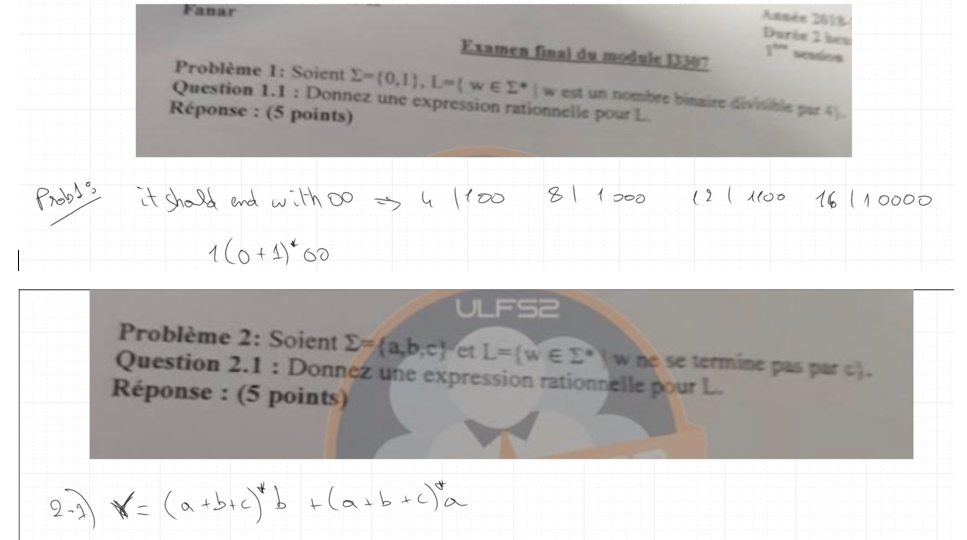 Fanar
Année 2018-
Durée 2 heu
1ère session
Examen final du module I3307
Problème 1: Soient Σ={0,1}, L={ w ∈ Σ* | w est un nombre binaire divisible par 4}.
Question 1.1 : Donnez une expression rationnelle pour L.
Réponse : (5 points)
Prob1: it should end with 00 => 4 | 100 8 | 1000 12 | 1100 16 | 10000
1(0+1)*00
ULFS2
Problème 2: Soient Σ={a,b,c} et L={w ∈ Σ* | w ne se termine pas par c}.
Question 2.1 : Donnez une expression rationnelle pour L.
Réponse : (5 points)
2-1) r = (a+b+c)*b + (a+b+c)*a